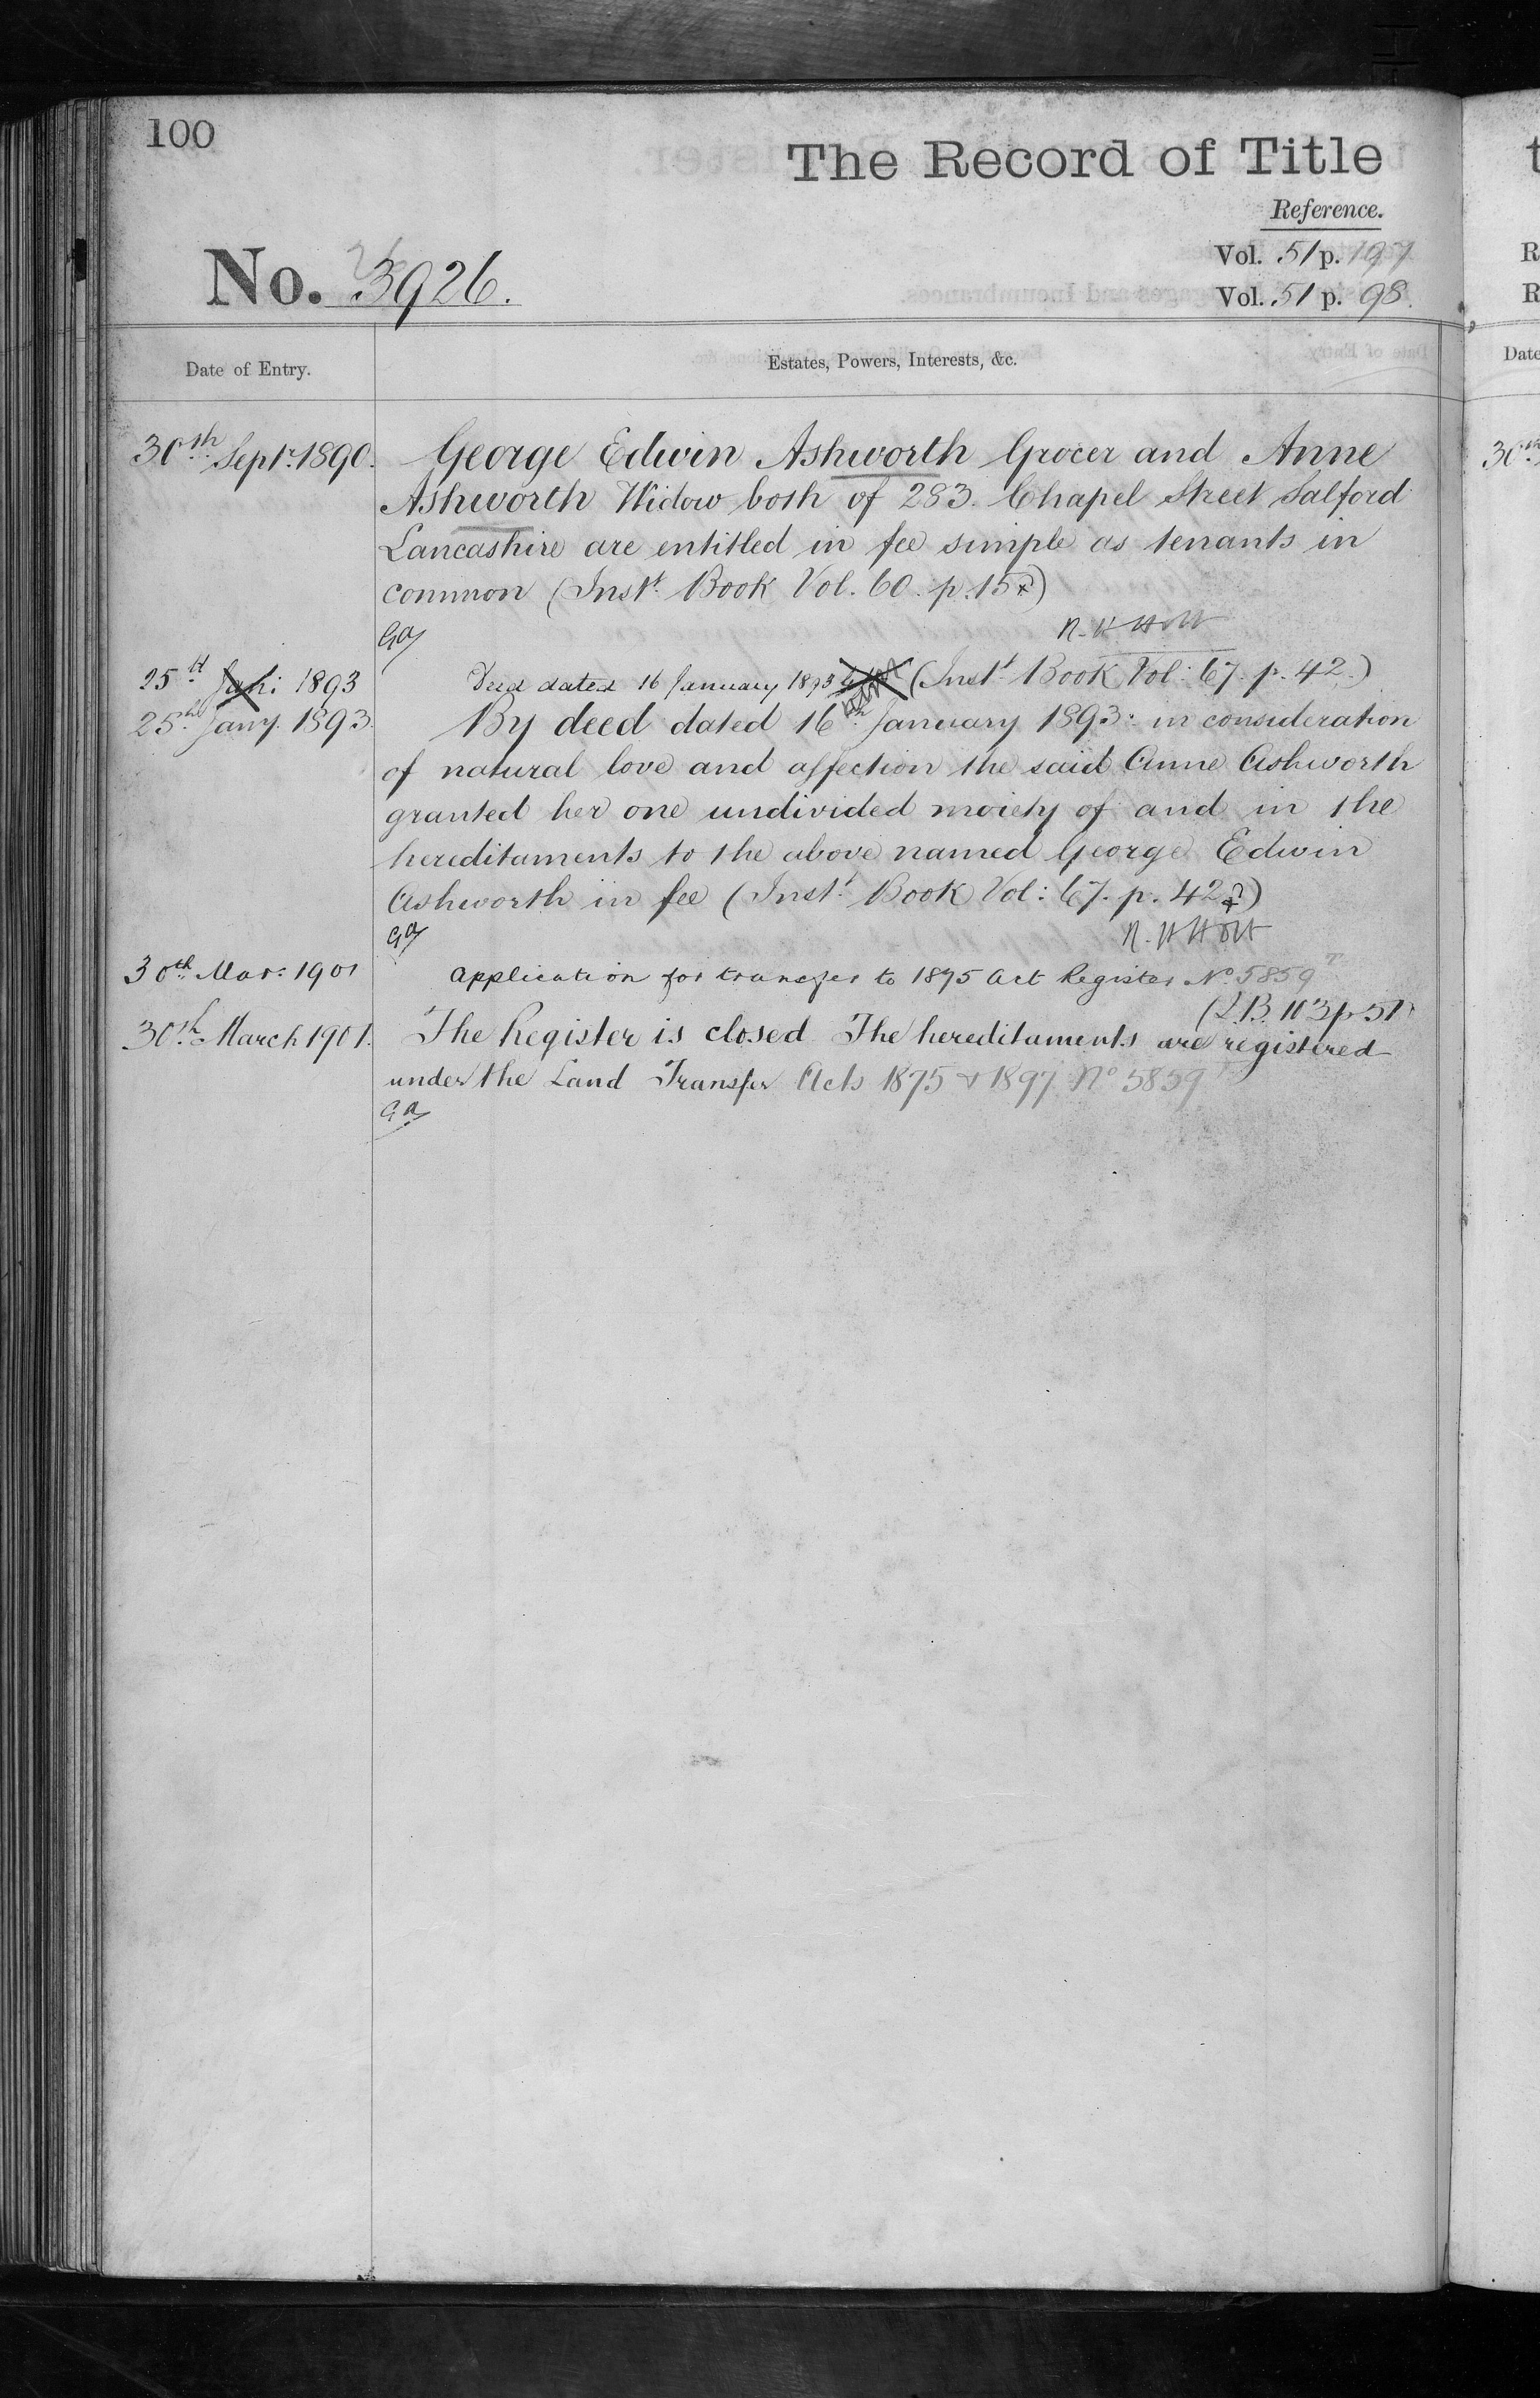 100
The Record of Title
Reference.
Vol. 51 p. 197
No. 3926.
Vol. 51 p. 98.
Date of Entry.
Estates, Powers, Interests, &c.
30th Septr. 1890. George Edwin Ashworth Grocer and Anne
Ashworth Widow both of 283. Chapel Street Salford
Lancashire are entitled in fee simple as tenants in
common (Inst. Book Vol. 60. p. 15)
GA
25th Jan: 1893 Deed dated 16 January 1893 (Inst. Book Vol: 67. p. 42.)
25th Jany. 1893. By deed dated 16th January 1893: in consideration
of natural love and affection the said Anne Ashworth
granted her one undivided moiety of and in the
hereditaments to the above named George Edwin
Ashworth in fee (Inst. Book Vol: 67. p. 42)
GA
30th Mar: 1901 Application for transfer to 1875 Act Register No. 5859
(I.B. 103 p 51)
30th March 1901. The Register is closed The hereditaments are registered
under the Land Transfer Acts 1875 & 1897 No 5859
GA
R
R
Date
30th